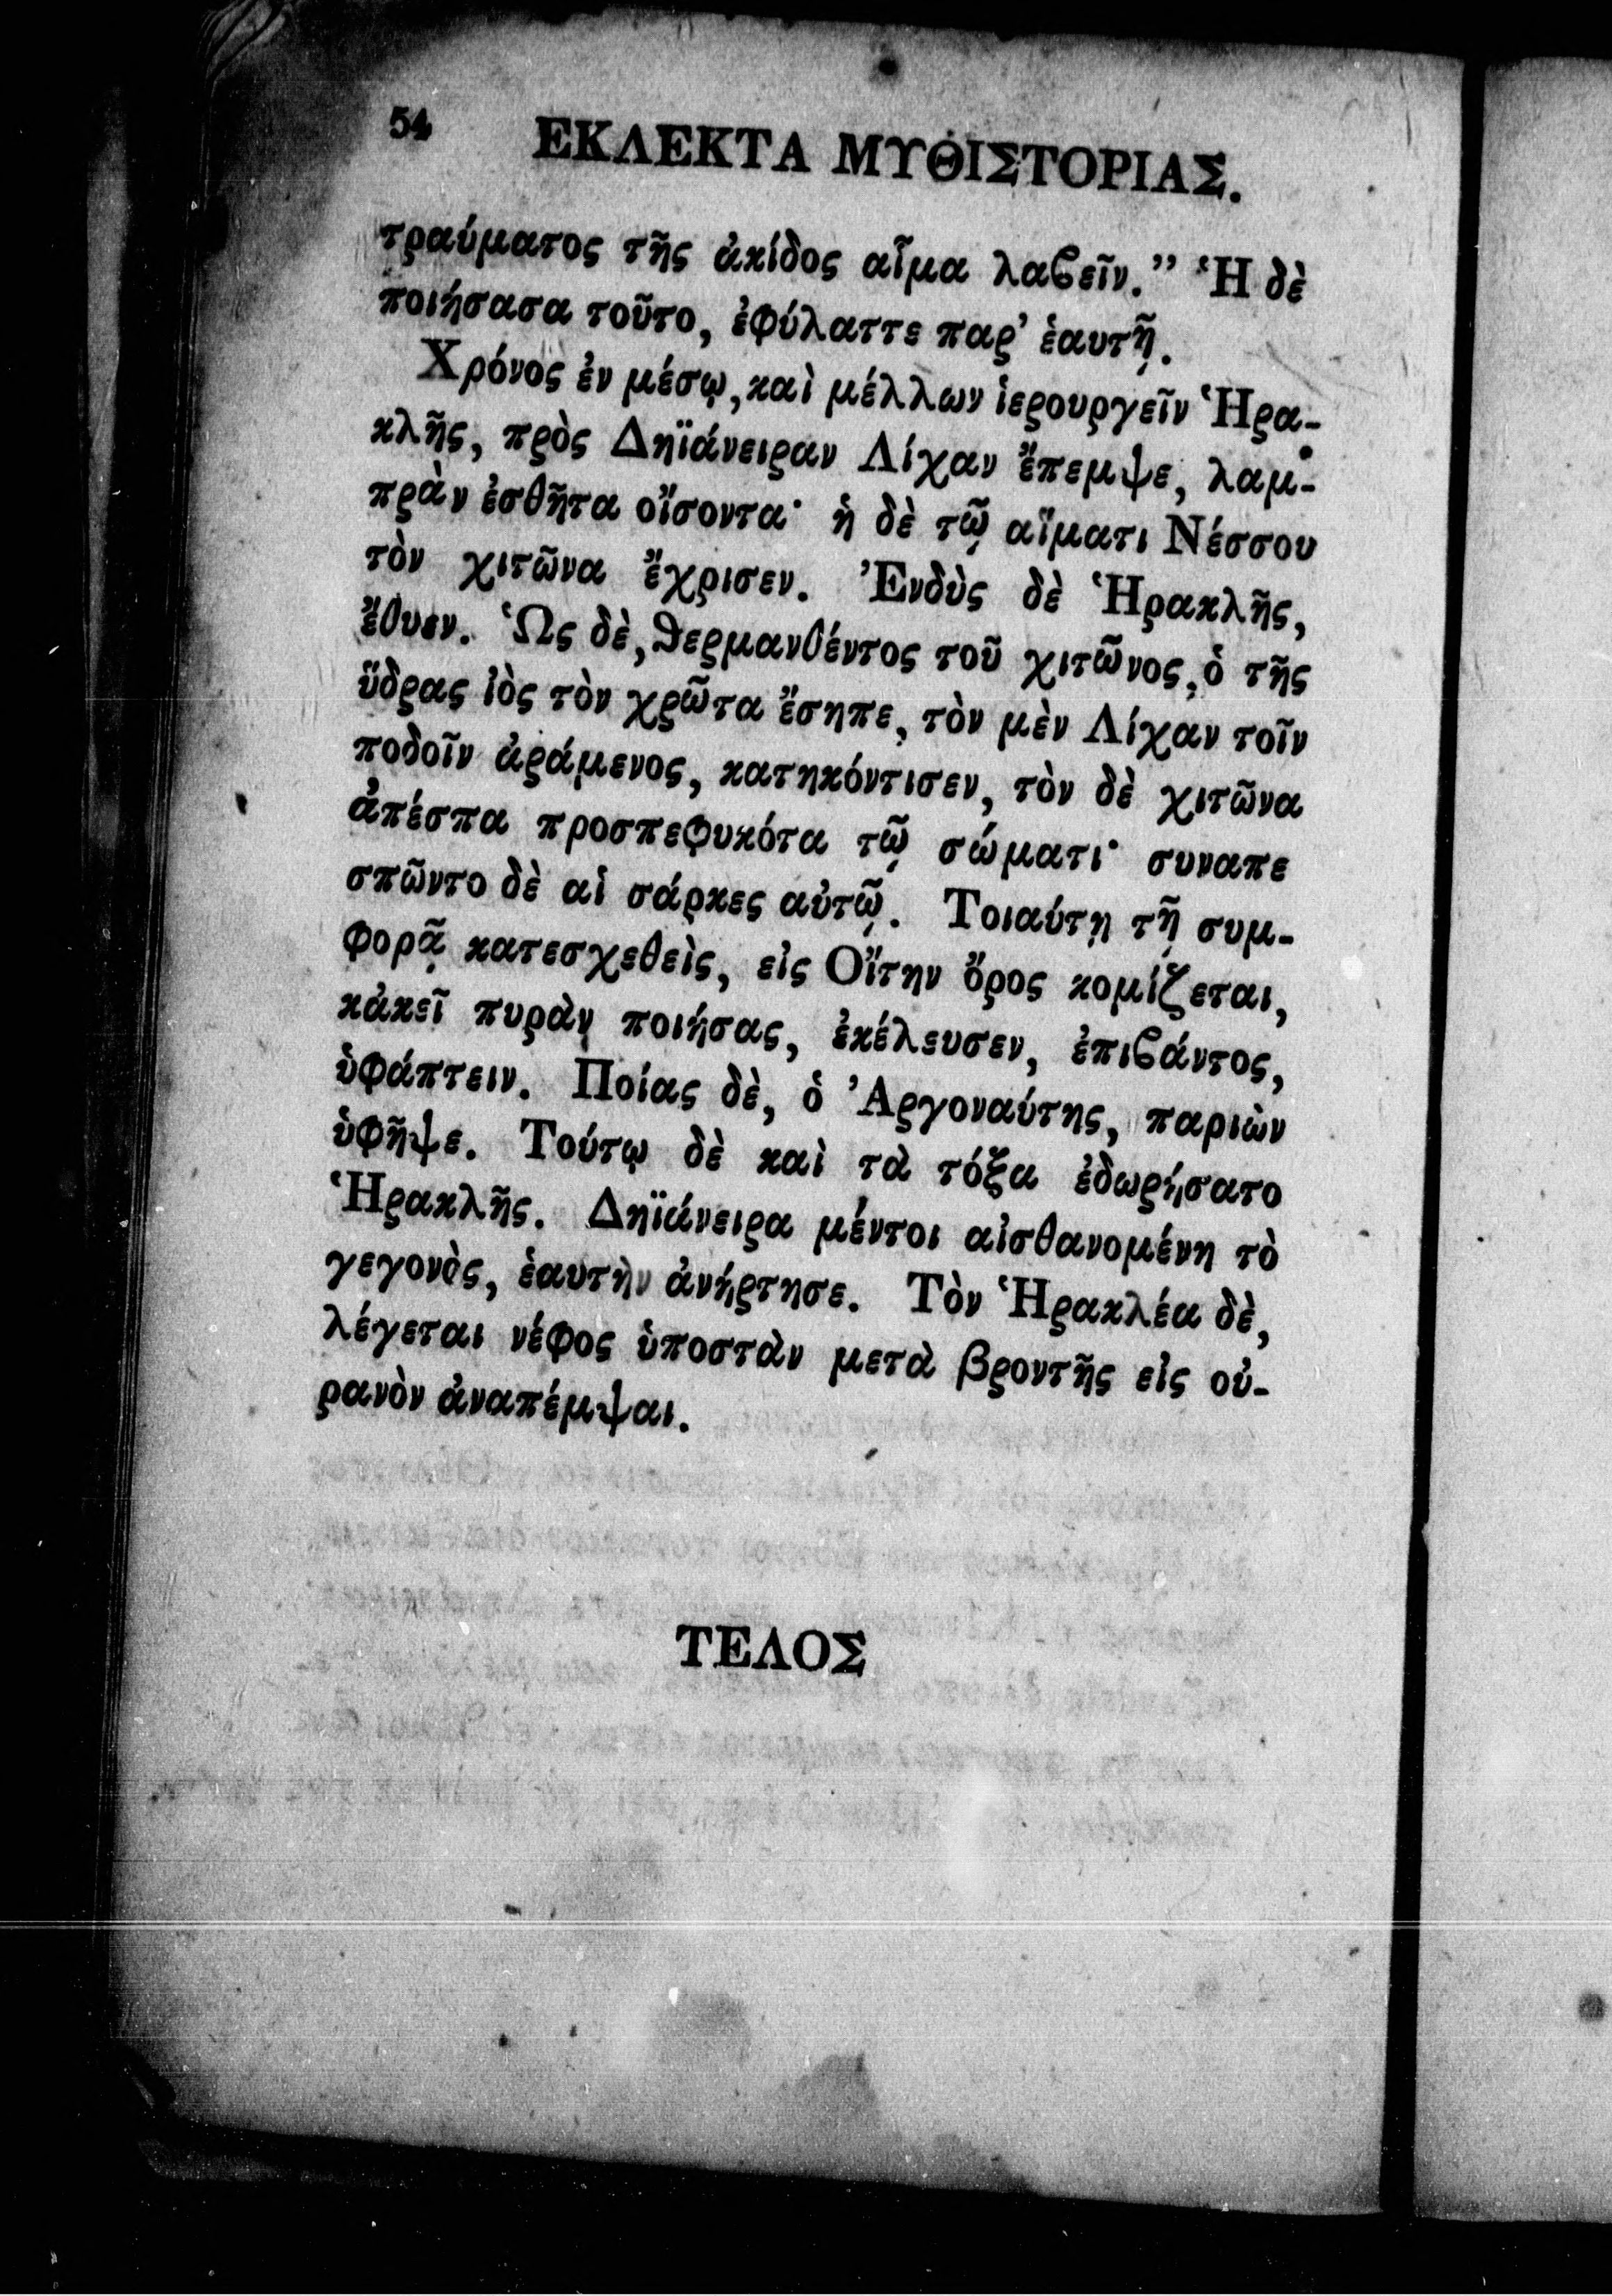 54 ΕΚΛΕΚΤΑ ΜΥΘΙΣΤΟΡΙΑΣ.
τραύματος τῆς ἀκίδος αἷμα λαϐεῖν.” Ἡ δὲ
ποιήσασα τοῦτο, ἐφύλαττε παρ’ ἑαυτῇ.
Χρόνος ἐν μέσῳ, καὶ μέλλων ἱερουργεῖν Ἡρα-
κλῆς, πρὸς Δηϊάνειραν Λίχαν ἔπεμψε, λαμ-
πρὰν ἐσθῆτα οἴσοντα· ἡ δὲ τῷ αἵματι Νέσσου
τὸν χιτῶνα ἔχρισεν. Ἐνδὺς δὲ Ἡρακλῆς,
ἔθυεν. Ὡς δὲ, θερμανθέντος τοῦ χιτῶνος, ὁ τῆς
ὕδρας ἰὸς τὸν χρῶτα ἔσηπε, τὸν μὲν Λίχαν τοῖν
ποδοῖν ἀράμενος, κατηκόντισεν, τὸν δὲ χιτῶνα
ἀπέσπα προσπεφυκότα τῷ σώματι· συναπε
σπῶντο δὲ αἱ σάρκες αὐτῷ. Τοιαύτῃ τῇ συμ-
φορᾷ κατεσχεθεὶς, εἰς Οἴτην ὄρος κομίζεται,
κἀκεῖ πυρὰν ποιήσας, ἐκέλευσεν, ἐπιϐάντος,
ὑφάπτειν. Ποίας δὲ, ὁ Ἀργοναύτης, παριὼν
ὑφῆψε. Τούτῳ δὲ καὶ τὰ τόξα ἐδωρήσατο
Ἡρακλῆς. Δηϊάνειρα μέντοι αἰσθανομένη τὸ
γεγονὸς, ἑαυτὴν ἀνήρτησε. Τὸν Ἡρακλέα δὲ,
λέγεται νέφος ὑποστὰν μετὰ βροντῆς εἰς οὐ-
ρανὸν ἀναπέμψαι.
ΤΕΛΟΣ